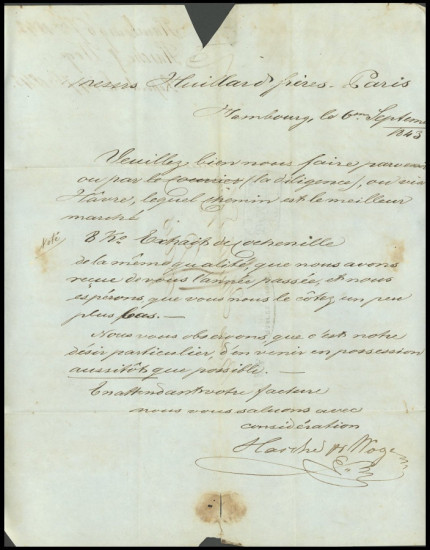 Messrs Huillard frères. Paris
Hambourg, le 6me Septem
1843
Veuillez bien nous faire parvenir
ou par le courrier (la diligence), ou via
Havre, lequel chemin est le meilleur
marché
8 Ko Extrait de cochenille
de la même qualité, que nous avons
reçue de vous l'année passée, et nous
espérons que vous nous le côtez un peu
plus bas. —
Nous vous observons que c'est notre
désir particulier, d'en venir en possession
aussitôt que possible. —
En attendant votre facture
nous vous saluons avec
considération